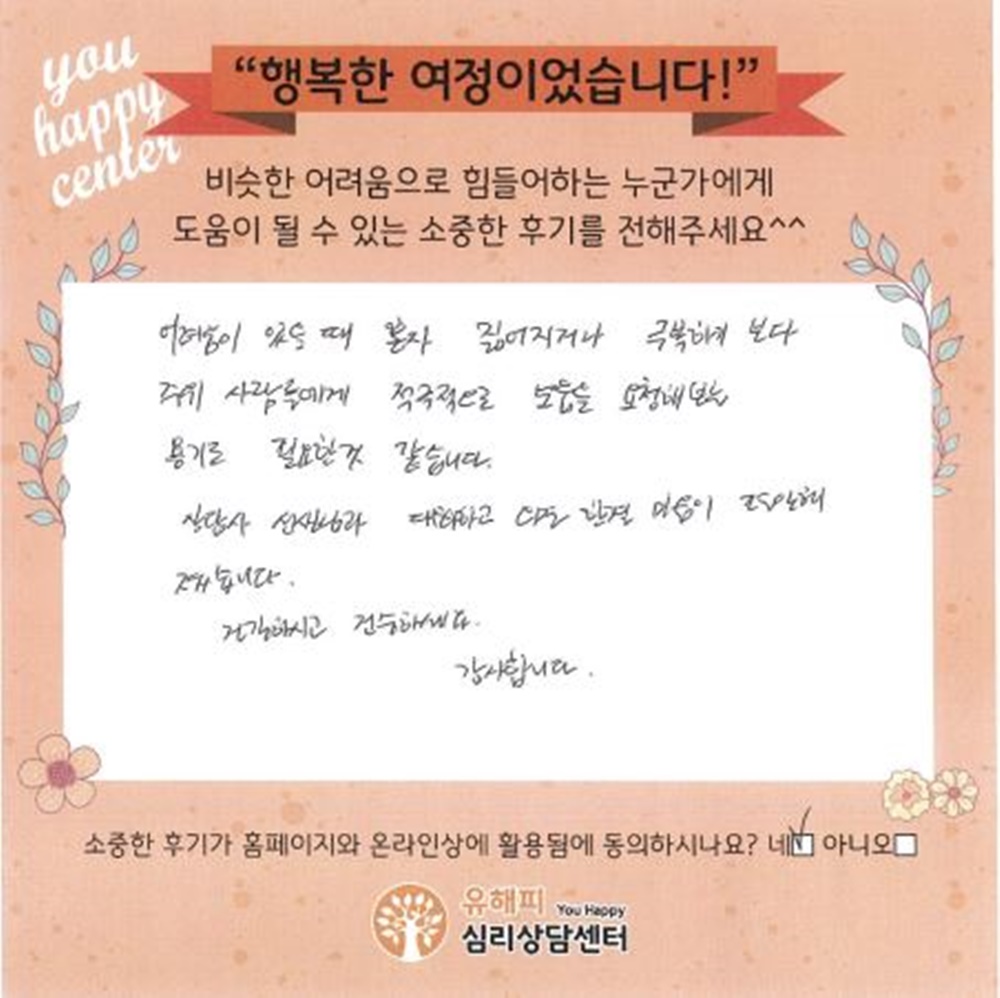 you
happy
center
“행복한 여정이었습니다!”
비슷한 어려움으로 힘들어하는 누군가에게
도움이 될 수 있는 소중한 후기를 전해주세요^^
어려움이 있을 때 혼자 짊어지거나 극복하려 보다
주위 사람들에게 적극적으로 도움을 요청해보는
용기도 필요한것 같습니다.
상담사 선생님과 대화하고 나도 한결 마음이 편안해
졌습니다.
건강하시고 건승하세요.
감사합니다.
소중한 후기가 홈페이지와 온라인상에 활용됨에 동의하시나요? 네 아니오
유해피 You Happy
심리상담센터